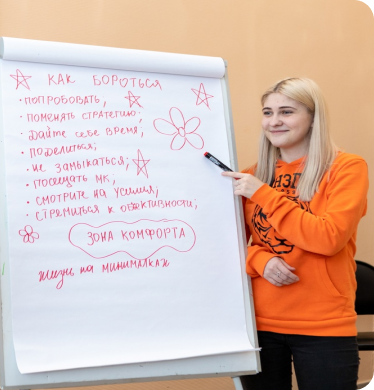 КАК БОРОТЬСЯ
· ПОПРОБОВАТЬ;
· ПОМЕНЯТЬ СТРАТЕГИЮ;
· ДАЙТЕ СЕБЕ ВРЕМЯ;
· ПОДЕЛИТЬСЯ;
· НЕ ЗАМЫКАТЬСЯ;
· ПОСЕЩАТЬ МК,
· СМОТРИТЕ НА УСИЛИЯ;
· СТРЕМИТЬСЯ К ОБЪЕКТИВНОСТИ;
ЗОНА КОМФОРТА
ЖИЗНЬ НА МИНИМАЛКАХ